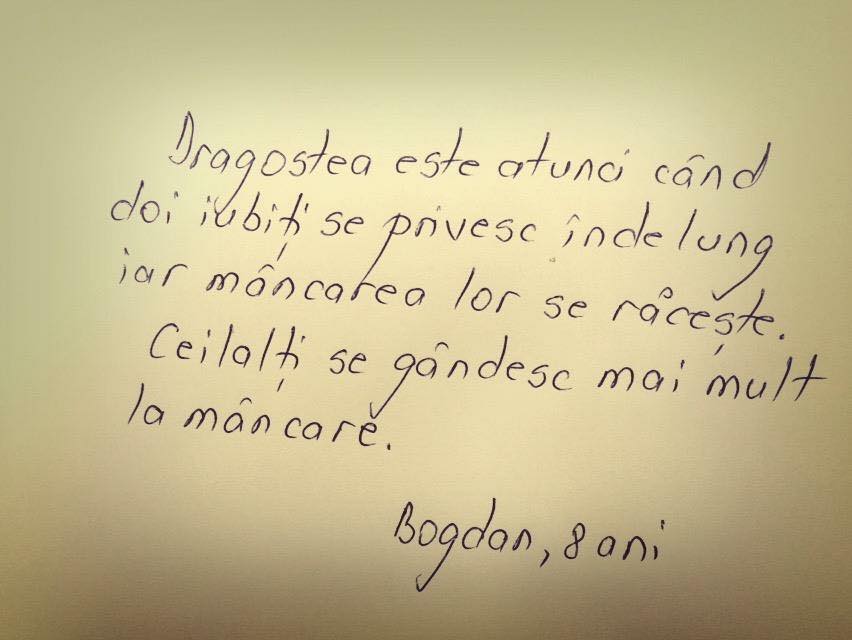 Dragostea este atunci când
doi iubiți se privesc îndelung
iar mâncarea lor se râcește.
Ceilalți se gândesc mai mult
la mâncare.
Bogdan, 8 ani